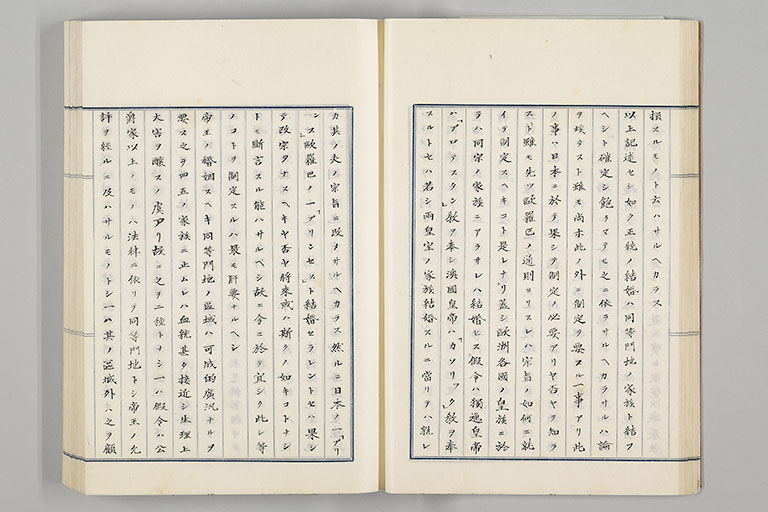 損スルモノト云ハサルヘカラス
以上記述セシ如ク正統ノ結婚ハ同等門地ノ家族ト結フ
ヘシト確定シ飽クマテモ之ニ依ラサルヘカラサルハ論
ヲ俟タスト雖モ尚ホ此ノ外ニ制定ヲ要スル一事アリ此
ノ事ハ日本ニ於テ果シテ制定ノ必要アリヤ否ヤヲ知ラ
スト雖モ先ツ歐羅巴ノ通則ヨリスレハ宗旨ノ如何ニ就
イテ制定スヘキコト是レナリ蓋シ歐洲各國ノ皇族ニ於
ラハ同宗ノ家族ニアラサレハ結婚セス假令ハ獨逸皇帝
ハ「プロテスタン」教ヲ奉シ澳國皇帝ハ「カソリック」教ヲ奉
スルトセハ若シ兩皇室ノ家族結婚スルニ當リテハ就レ
カ其ノ夫ノ宗旨ニ改メサルヘカラス然ルニ日本ノ一「プリ
ンス」歐羅巴ノ一「プリンセス」ト結婚セラレントセハ果シ
テ改宗ヲナスヘキヤ否ヤ將來或ハ斯クノ如キコトナシ
トモ斷言スル能ハサルヘシ故ニ今ニ於テ宜シク此レ等
ノコトヲ制定スルハ最モ肝要ナルヘシ
帝王ノ婚姻スヘキ同等門地ノ區域ハ可成的廣汎ナルヲ
要ス之ヲ四五ノ家族ニ止ムレハ血統甚タ接近シ生理上
大害ヲ釀スノ虞アリ故ニ之ヲ二種トナシ一ハ假令ハ公
爵家以上ノモノハ法律ニ依リテ同等門地トシ帝王ノ允
許ヲ經ルニ及ハサルモノトシ一ハ其ノ區域外ノ之ヲ顧